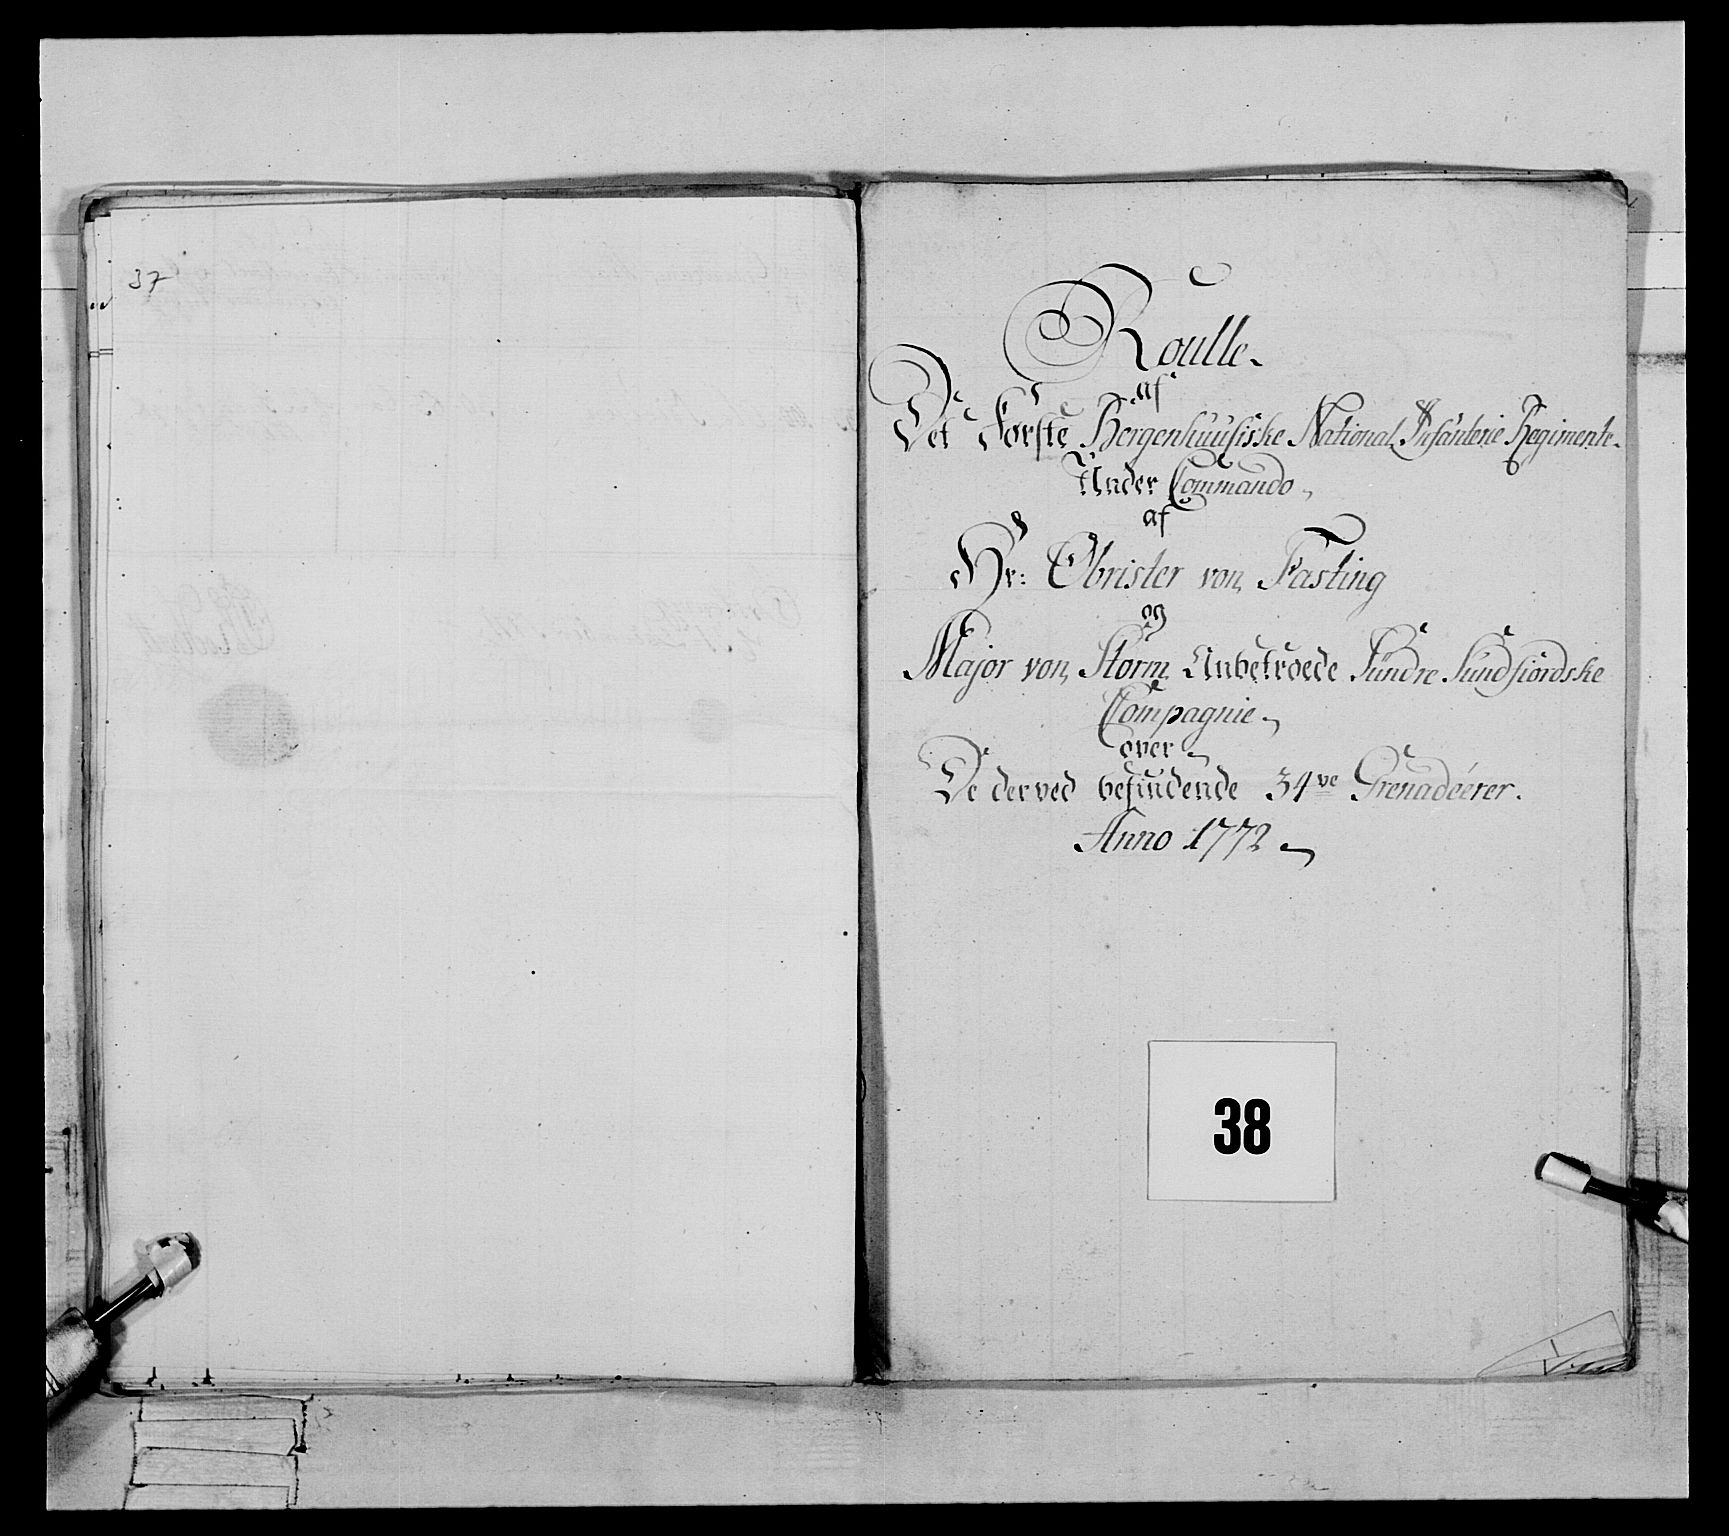 37
Roulle
af
Det Første Bergenhuusiske National Infanterie Regimente
Under Commando
af
Hr: Obrister von Fasting
og
Major von Storm Anbetroede Sundre Sundfiordske
Compagnie
over
De derved befindende 34ve Grenadeerer.
Anno 1772
38